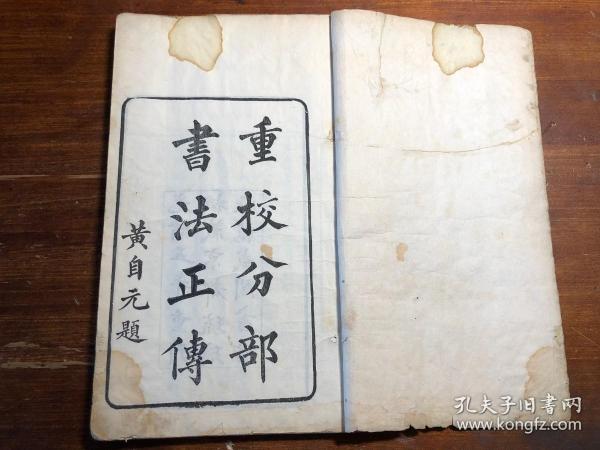 重校分部
書法正傳
黃自元題
孔夫子旧书网
www.kongfz.com